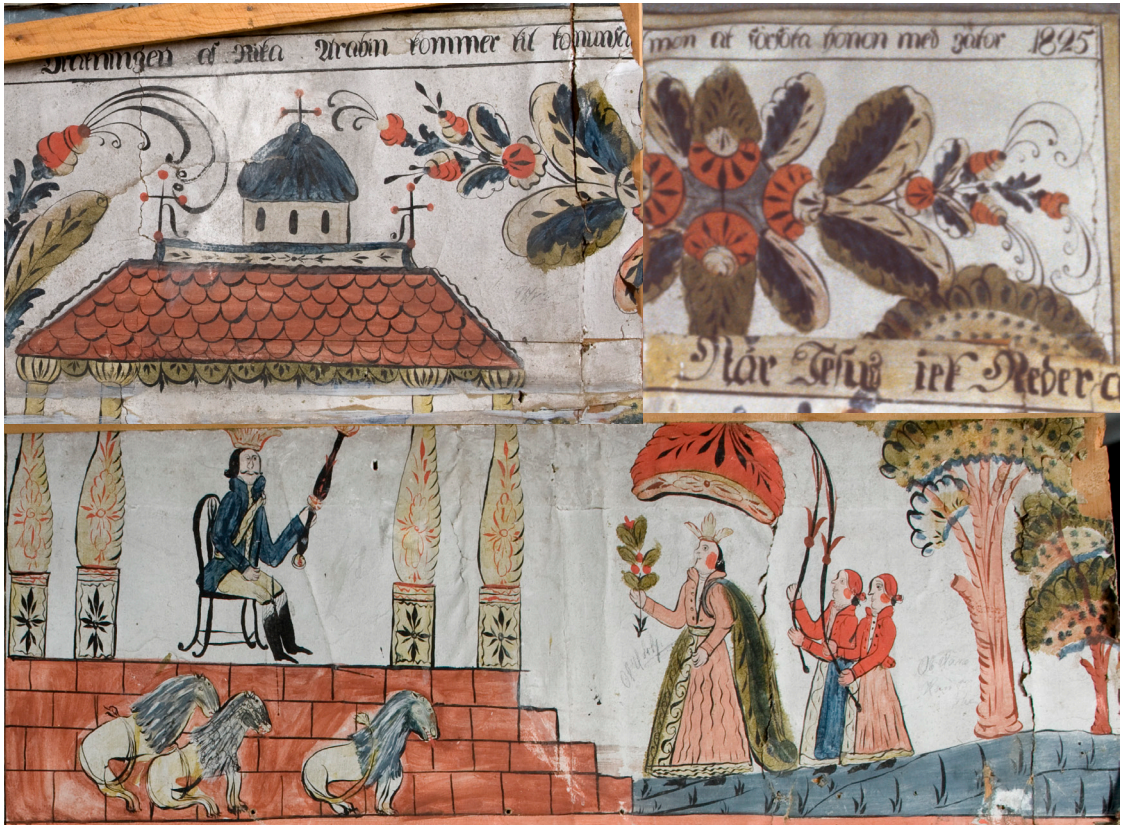 Drotningen af Rika Arabin kommer til konunSa
mon at försöka honon med gåtor 1825
När Jesus